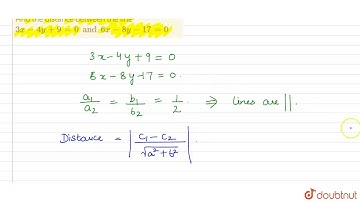 Find the distance between the line
3x − 4y + 9 = 0 and 6x − 8y − 17 = 0
3x - 4y + 9 = 0
6x - 8y - 17 = 0.
a₁/a₂ = b₁/b₂ = 1/2. ⇒ lines are ||.
Distance = | c₁ - c₂ / √a² + b² |.
doubtnut